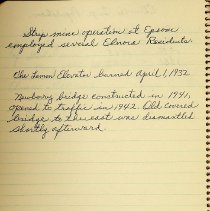 Strip mine operation at Epsom
employed several Elnora Residents.
The Lemon Elevator burned April 1, 1932
Newberry bridge constructed in 1941,
opened to traffic in 1942. Old covered
bridge to the east was dismantled
shortly afterward.